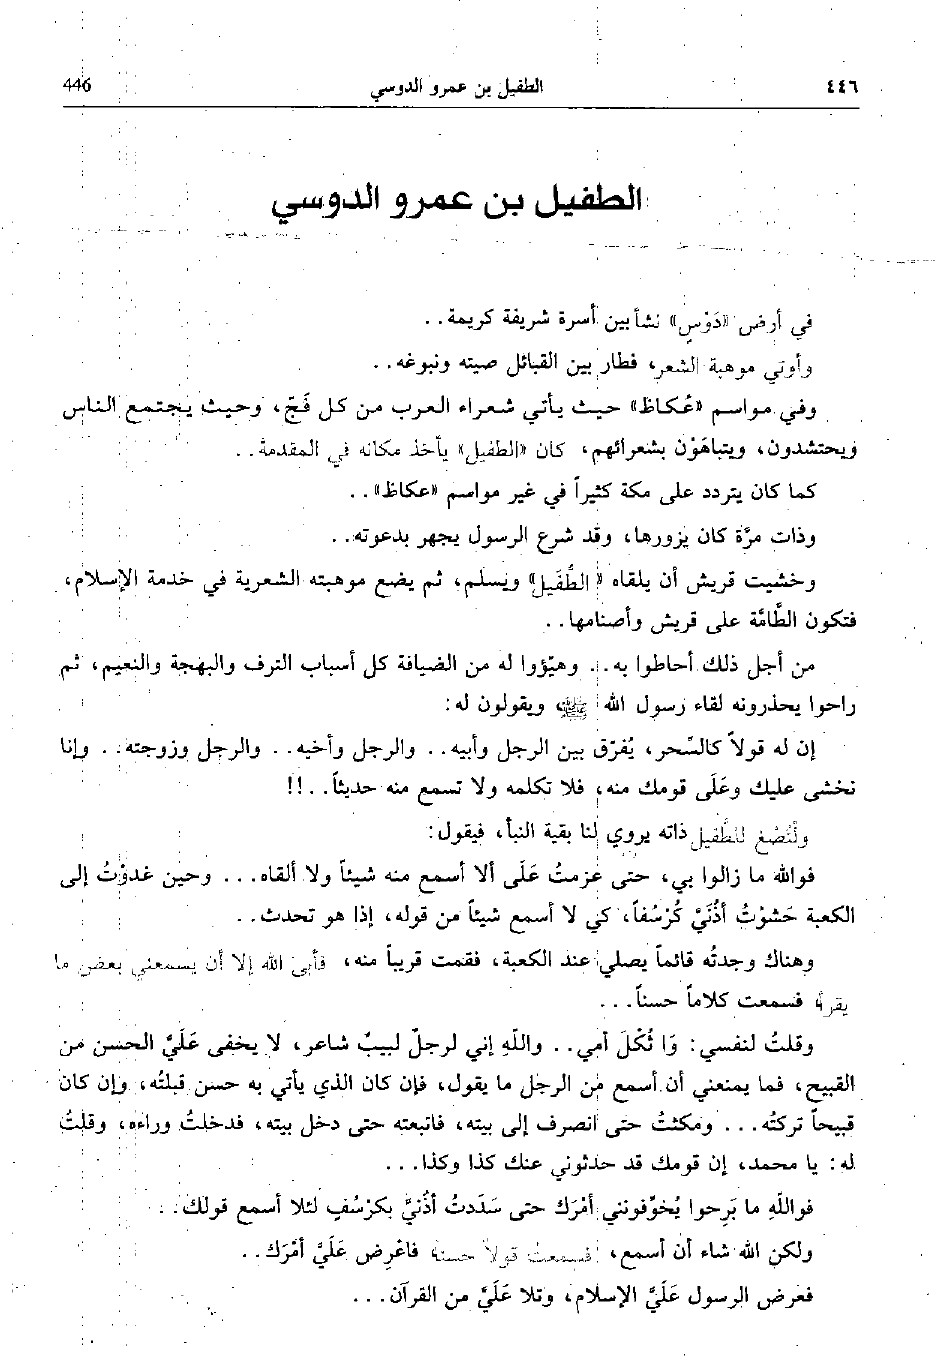 ٤٤٦ الطفيل بن عمرو الدوسي 446
الطفيل بن عمرو الدوسي
في أرض «دَوْسٍ» نشأ بين أسرة شريفة كريمة..
وأوتي موهبة الشعر، فطار بين القبائل صيته ونبوغه..
وفي مواسم «عُكاظ» حيث يأتي شعراء العرب من كل فَجّ، وحيث يجتمع الناس
ويحتشدون، ويتباهَوْن بشعرائهم، كان «الطفيل» يأخذ مكانه في المقدمة..
كما كان يتردد على مكة كثيراً في غير مواسم «عكاظ»..
وذات مرَّة كان يزورها، وقد شرع الرسول يجهر بدعوته..
وخشيت قريش أن يلقاه «الطُّفَيل» ويسلم، ثم يضع موهبته الشعرية في خدمة الإسلام،
فتكون الطَّامَّة على قريش وأصنامها..
من أجل ذلك أحاطوا به.. وهيّؤوا له من الضيافة كل أسباب الترف والبهجة والنعيم، ثم
راحوا يحذرونه لقاء رسول الله ﷺ، ويقولون له:
إن له قولاً كالسِّحر، يُفرّق بين الرجل وأبيه.. والرجل وأخيه.. والرجل وزوجته.. وإنا
نخشى عليك وعَلَى قومك منه، فلا تكلمه ولا تسمع منه حديثاً..!!
ولْنُصْغِ للطُّفيل ذاته يروي لنا بقية النبأ، فيقول:
فوالله ما زالوا بي، حتى عزمتُ عَلَى ألا أسمع منه شيئاً ولا ألقاه... وحين غدوْتُ إلى
الكعبة حَشوْتُ أذُنَيَّ كُرْسُفاً، كي لا أسمع شيئاً من قوله، إذا هو تحدث..
وهناك وجدتُه قائماً يصلي عند الكعبة، فقمت قريباً منه، فأبى الله إلا أن يسمعني بعض ما
يقرأ، فسمعت كلاماً حسناً...
وقلتُ لنفسي: وَا ثُكْلَ أمي.. واللَّهِ إني لرجلٌ لبيبٌ شاعر، لا يخفى عَلَيَّ الحسن من
القبيح، فما يمنعني أن أسمع من الرجل ما يقول، فإن كان الذي يأتي به حسن قبلتُه، وإن كان
قبيحاً تركتُه... ومكثتُ حتى انصرف إلى بيته، فاتبعته حتى دخل بيته، فدخلتُ وراءه، وقلتُ
له: يا محمد، إن قومك قد حدثوني عنك كذا وكذا...
فواللَّهِ ما بَرِحوا يُخوِّفونني أمْرَك حتى سَدَدتُ أذُنيَّ بكرْسُفٍ لئلا أسمع قولك..
ولكن الله شاء أن أسمع، فسمعتُ قولاً حسناً، فاعْرِض عَلَيَّ أمْرَك..
فعرض الرسول عَلَيَّ الإسلام، وتلا عَلَيَّ من القرآن...